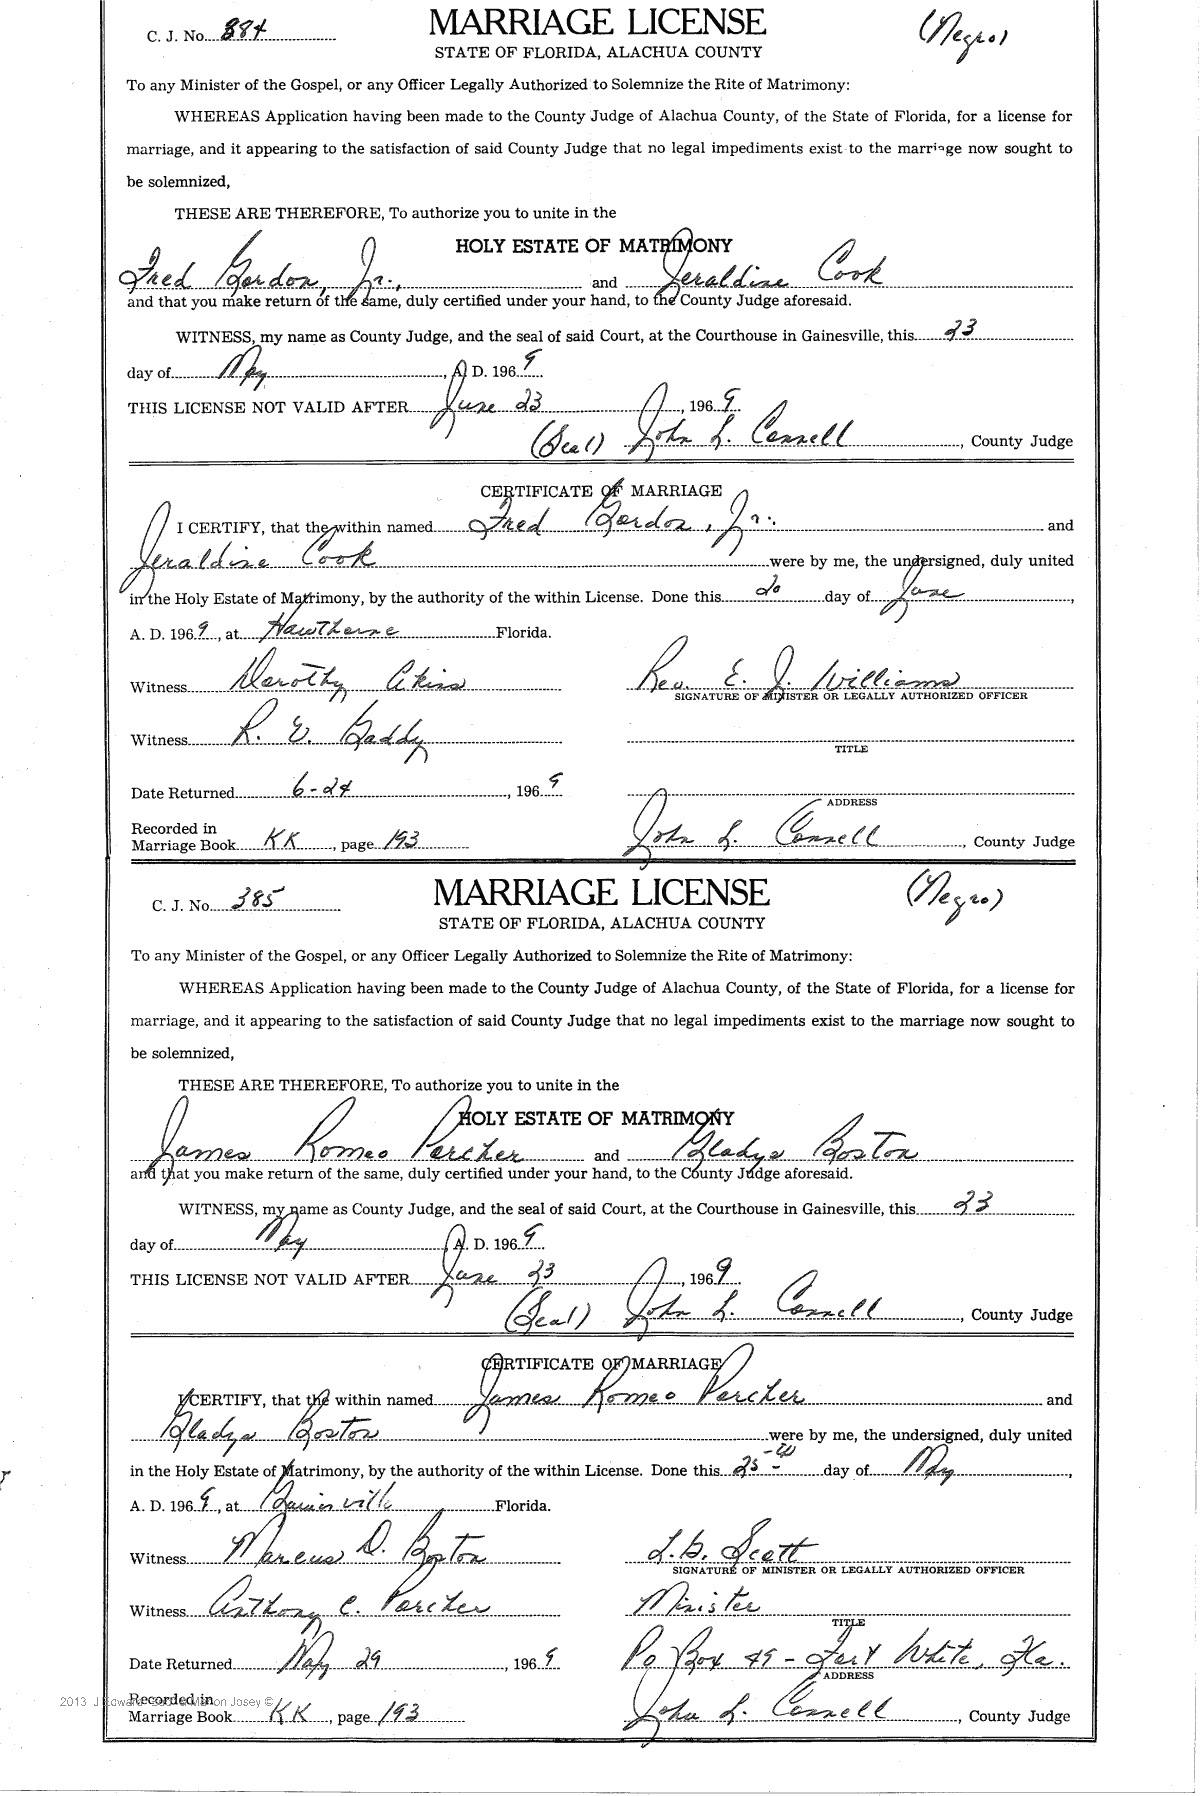 C. J. No. 384 MARRIAGE LICENSE (Negro)
STATE OF FLORIDA, ALACHUA COUNTY
To any Minister of the Gospel, or any Officer Legally Authorized to Solemnize the Rite of Matrimony:
WHEREAS Application having been made to the County Judge of Alachua County, of the State of Florida, for a license for
marriage, and it appearing to the satisfaction of said County Judge that no legal impediments exist to the marriage now sought to
be solemnized,
THESE ARE THEREFORE, To authorize you to unite in the
HOLY ESTATE OF MATRIMONY
Fred Gordon, Jr., and Jeraldine Cook
and that you make return of the same, duly certified under your hand, to the County Judge aforesaid.
WITNESS, my name as County Judge, and the seal of said Court, at the Courthouse in Gainesville, this 23
day of May, A. D. 1969.
THIS LICENSE NOT VALID AFTER June 23, 1969.
(Seal) John L. Connell, County Judge
CERTIFICATE OF MARRIAGE
I CERTIFY, that the within named Fred Gordon, Jr. and
Jeraldine Cook were by me, the undersigned, duly united
in the Holy Estate of Matrimony, by the authority of the within License. Done this 20 day of June,
A. D. 1969, at Hawthorne Florida.
Witness Dorothy Akins Rev. E. J. Williams
SIGNATURE OF MINISTER OR LEGALLY AUTHORIZED OFFICER
Witness R. E. Gaddy
TITLE
Date Returned 6-24, 1969
ADDRESS
Recorded in
Marriage Book KK, page 193 John L. Connell, County Judge
C. J. No. 385 MARRIAGE LICENSE (Negro)
STATE OF FLORIDA, ALACHUA COUNTY
To any Minister of the Gospel, or any Officer Legally Authorized to Solemnize the Rite of Matrimony:
WHEREAS Application having been made to the County Judge of Alachua County, of the State of Florida, for a license for
marriage, and it appearing to the satisfaction of said County Judge that no legal impediments exist to the marriage now sought to
be solemnized,
THESE ARE THEREFORE, To authorize you to unite in the
HOLY ESTATE OF MATRIMONY
James Romeo Porcher and Gladys Boston
and that you make return of the same, duly certified under your hand, to the County Judge aforesaid.
WITNESS, my name as County Judge, and the seal of said Court, at the Courthouse in Gainesville, this 23
day of May A. D. 1969.
THIS LICENSE NOT VALID AFTER June 23, 1969.
(Seal) John L. Connell, County Judge
CERTIFICATE OF MARRIAGE
I CERTIFY, that the within named James Romeo Porcher and
Gladys Boston were by me, the undersigned, duly united
in the Holy Estate of Matrimony, by the authority of the within License. Done this 25 day of May,
A. D. 1969, at Gainesville Florida.
Witness Marcus D. Boston L. G. Scott
SIGNATURE OF MINISTER OR LEGALLY AUTHORIZED OFFICER
Witness Anthony C. Porcher Minister
TITLE
Date Returned May 29, 1969 Po Box 49 - Fort White, Fla.
ADDRESS
Recorded in
Marriage Book KK, page 193 John L. Connell, County Judge